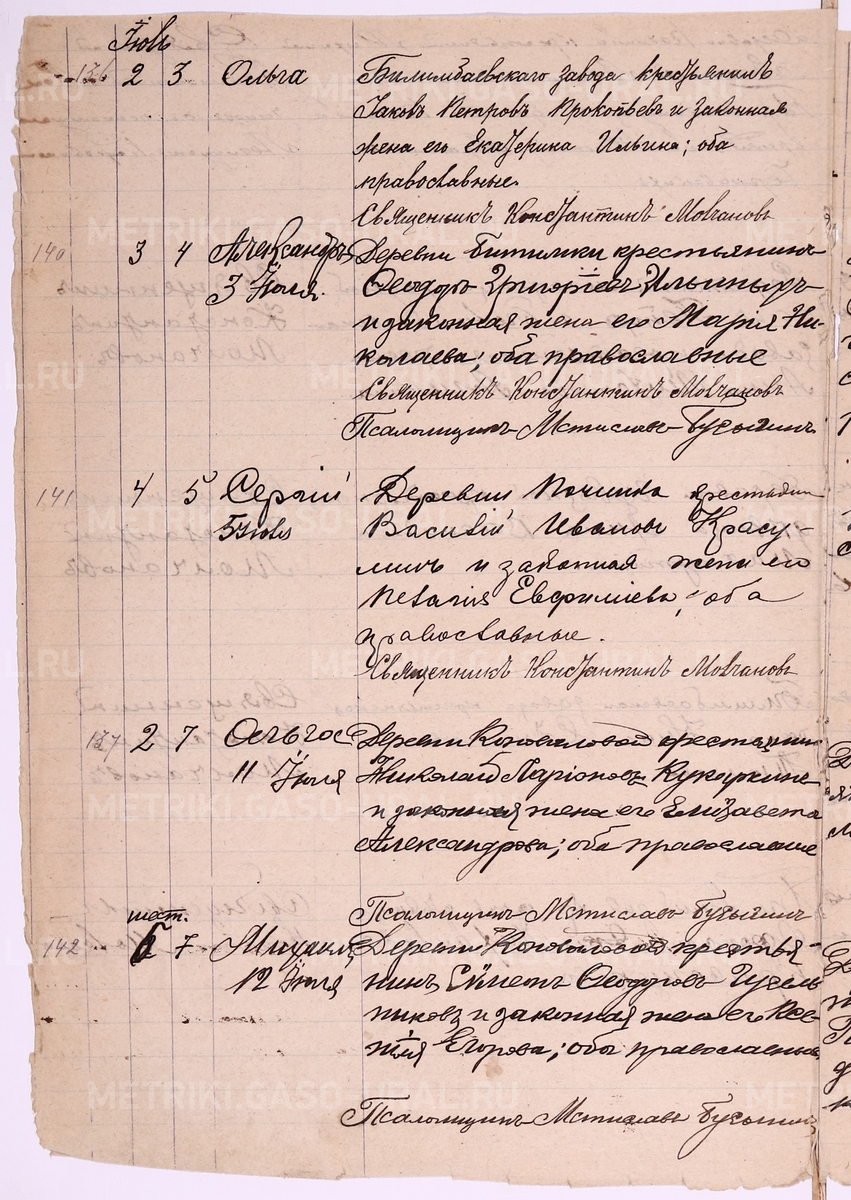 Іюль
136 2 3 Ольга Билимбаевскаго завода крестьянинъ
Іаковъ Петровъ Прокопьевъ и законная
жена его Екатерина Ильина; оба
православные.
Священникъ Константинъ Мовчановъ
140 3 4 Александръ Деревни Битимки крестьянинъ
3 Іюля. Ѳеодоръ Григоріевъ Ильиныхъ
и законная жена его Марія Ни-
колаева; оба православные
Священникъ Константинъ Мовчановъ
Псаломщикъ Мстиславъ
141 4 5 Сергій Деревни Починка крестьянин
5 Іюль Василій Ивановъ Красу-
линъ и законная жена его
Пелагія Евфиміева; оба
православные.
Священникъ Константинъ Мовчановъ
137 2 7 Ольга Деревни Коноваловой крестьянинъ
11 Іюля Николай Ларіоновъ Кукаркинъ
и законная жена его Елизавета
Александрова; оба православные
Псаломщикъ Мстиславъ
шест.
142 6 7 Михаилъ Деревни Коноваловой крестья-
12 Іюля нинъ Симеонъ Ѳеодоровъ
и законная жена его
Егорова; оба православные
Псаломщикъ Мстиславъ
METRIKI.GASO-URAL.RU